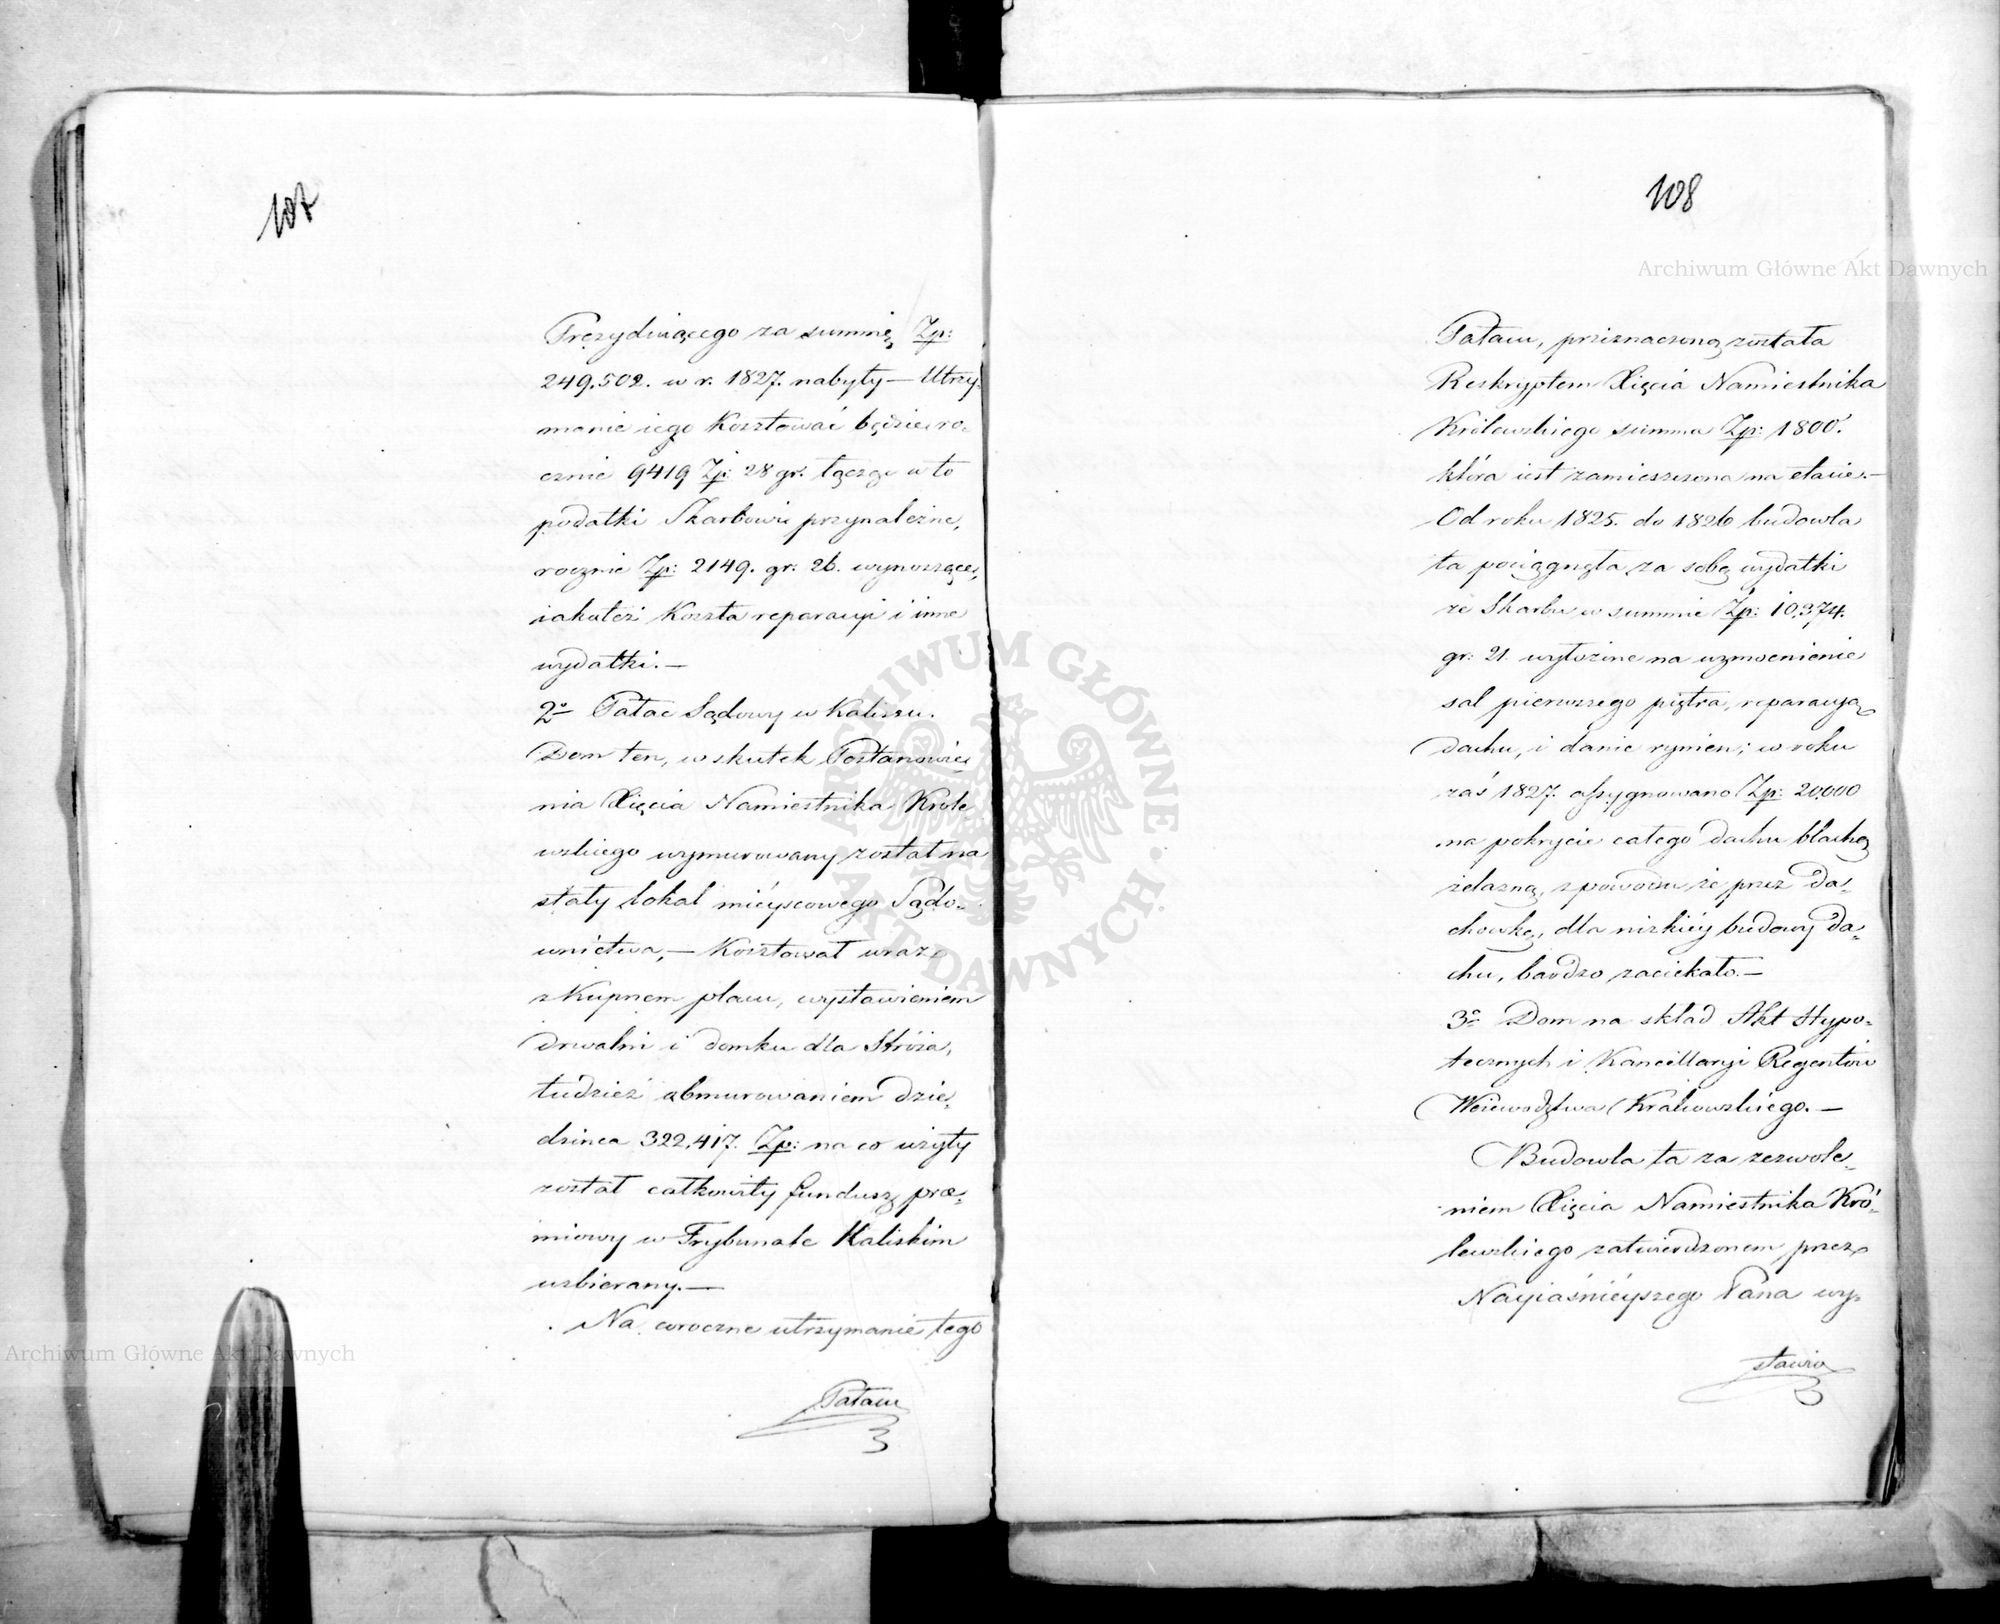 107
Prezyduiącego za summę Zp:
249.502. w r. 1827. nabyty — Utrzy-
manie iego kosztować będzie ro-
cznie 9419 Zp: 28 gr. łącząc w to
podatki Skarbowi przynależne,
rocznie Zp: 2149. gr: 26. wynoszące,
iakoteż koszta reparacyi i inne
wydatki. —
2o Pałac Sądowy w Kaliszu.
Dom ten, w skutek Postanowie-
nia Xięcia Namiestnika Króle
wskiego wymurowany został na
stały lokal mieyscowego Sądo-
wnictwa, — Kosztował wraz
z kupnem placu, wystawieniem
drwalni i domku dla Stróża,
tudzież obmurowaniem dzie-
dzinca 322.417. Zp: na co użyty
został całkowity fundusz prae-
miowy w Trybunale Kaliskim
uzbierany. —
Na coroczne utrzymanie tego
Pałacu
108
Pałacu, przeznaczoną została
Reskryptem Xięcia Namiestnika
Królewskiego summa Zp: 1800.
która iest zamieszczona na etacie. —
Od roku 1825. do 1826 budowla
ta pociągnęła za sobą wydatki
ze Skarbu w summie Zp: 10,374.
gr: 21. wyłożone na wzmocnienie
sal pierwszego piętra, reparacyą
dachu, i danie rynien; w roku
zaś 1827. assygnowano Zp: 20,000
na pokrycie całego dachu blachą
żelazną, z powodu że przez da-
chowkę, dla nizkiéy budowy da-
chu, bardzo zaciekało. —
3o Dom na skład Akt Hypo-
tecznych i Kancellaryi Regentów
Woiewództwa Krakowskiego. —
Budowla ta za zezwole-
niem Xięcia Namiestnika Kró-
lewskiego zatwierdzonem przez
Nayiaśnieyszego Pana wy-
stawio
Archiwum Główne Akt Dawnych
Archiwum Główne Akt Dawnych
ARCHIWUM GŁÓWNE AKT DAWNYCH